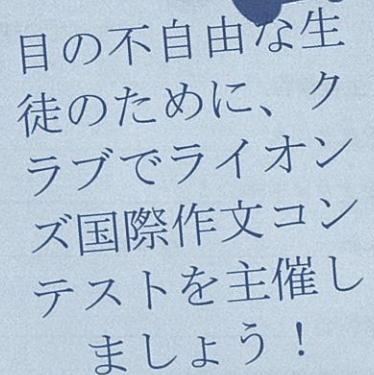 目の不自由な生
徒のために、ク
ラブでライオン
ズ国際作文コン
テストを主催し
ましょう！